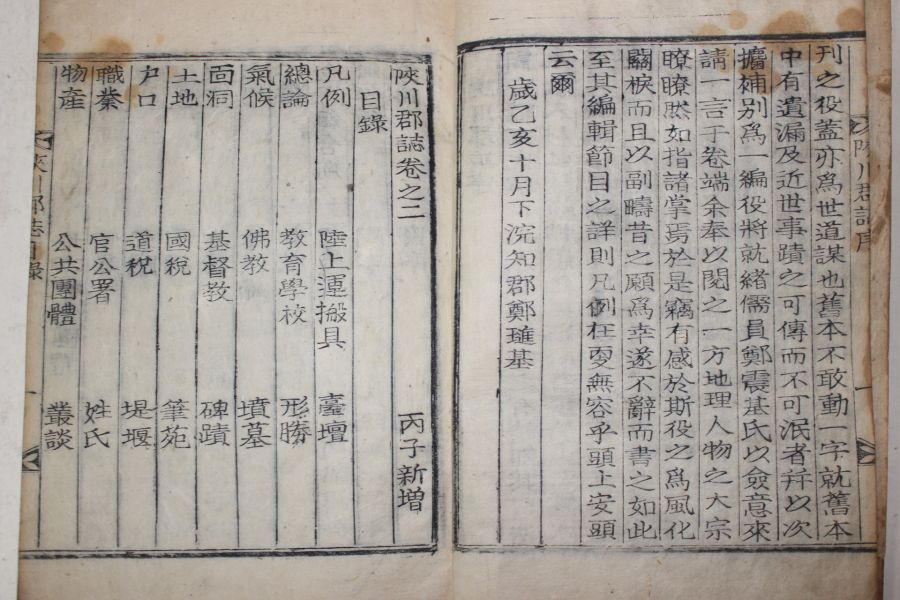 刊之役蓋亦爲世道謀也舊本不敢動一字就舊本
中有遺漏及近世事蹟之可傳而不可泯者幷以次
攟補別爲一編役將就緒儒員鄭震基氏以僉意來
請一言于卷端余奉以閱之一方地理人物之大宗
瞭瞭然如指諸掌焉於是竊有感於斯役之爲風化
關棙而且以副疇昔之願爲幸遂不辭而書之如此
至其編輯節目之詳則凡例在耍無容乎頭上安頭
云爾
歲乙亥十月下浣知郡鄭璀基
陜川郡誌卷之二 丙子新增
目錄
凡例 陸上運搬具 臺壇
總論 教育學校 形勝
氣候 佛教 墳墓
面洞 基督教 碑蹟
土地 國稅 筆苑
戶口 道稅 堤堰
職業 官公署 姓氏
物產 公共團體 叢談
陜川郡誌目錄 一